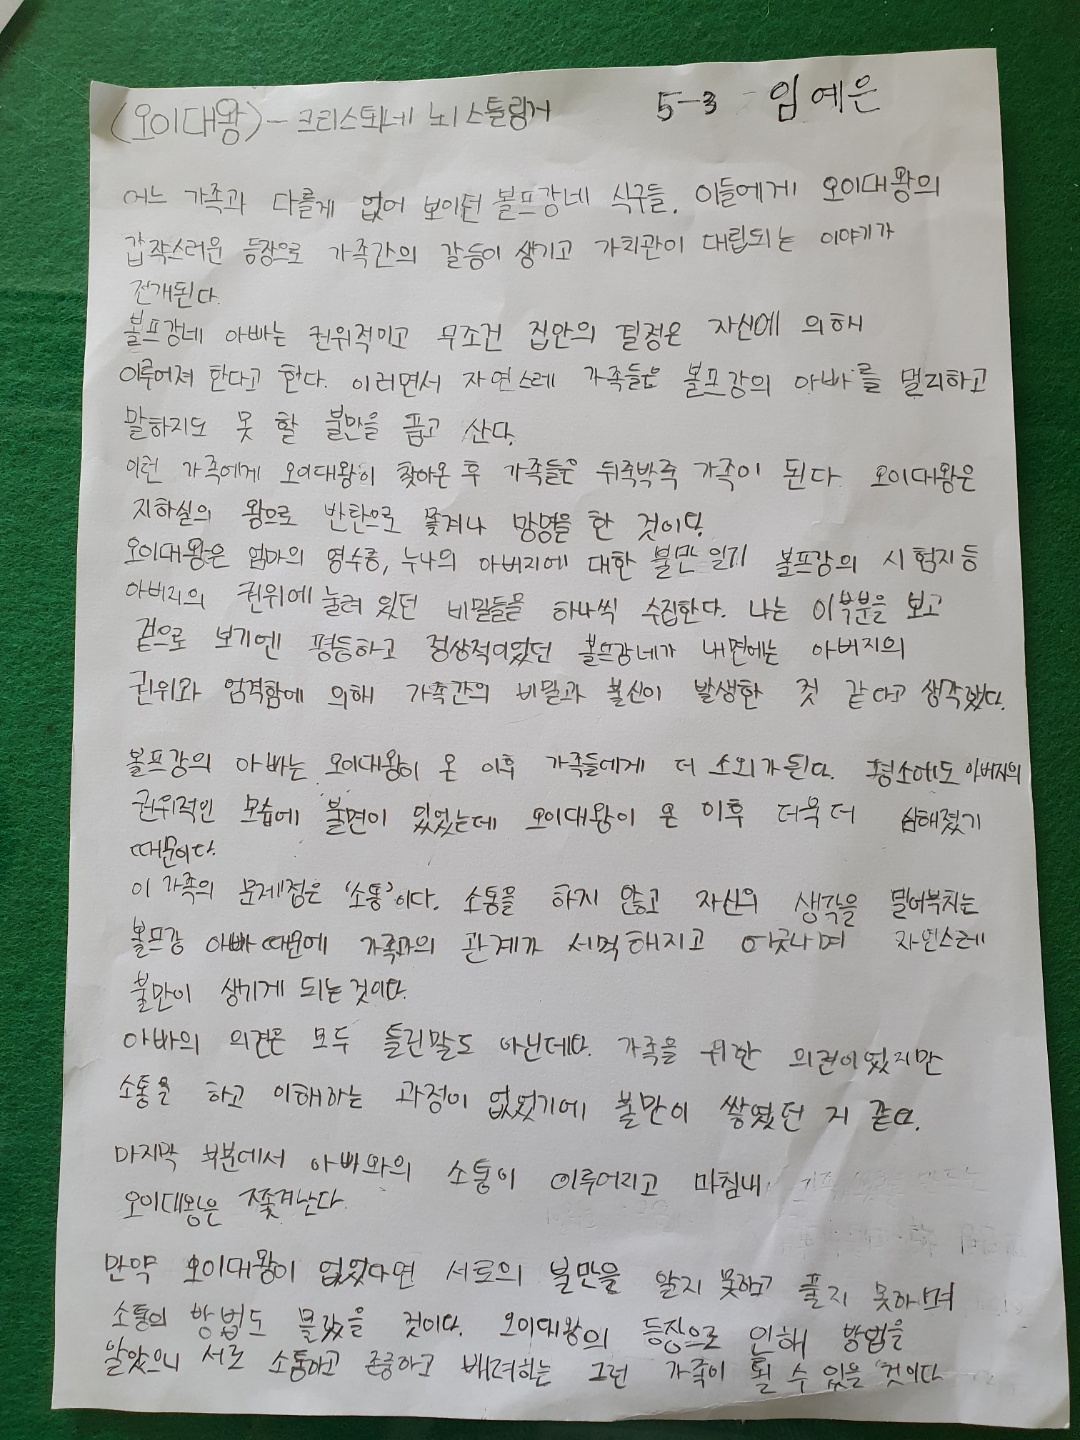 (오이대왕) - 크리스티네 뇌스틀링거 5-3 임예은
어느 가족과 다를게 없어 보이던 볼프강네 식구들. 이들에게 오이대왕의
갑작스러운 등장으로 가족간의 갈등이 생기고 가치관이 대립되는 이야기가
전개된다.
볼프강네 아빠는 권위적이고 무조건 집안의 결정은 자신에 의해
이루어져 한다고 한다. 이러면서 자연스레 가족들은 볼프강의 아빠를 멀리하고
말하지도 못 할 불만을 품고 산다.
이런 가족에게 오이대왕이 찾아온 후 가족들은 뒤죽박죽 가족이 된다. 오이대왕은
지하실의 왕으로 반란으로 쫓겨나 망명을 한 것이다.
오이대왕은 엄마의 영수증, 누나의 아버지에 대한 불만 일기 볼프강의 시험지등
아버지의 권위에 눌려 있던 비밀들을 하나씩 수집한다. 나는 이부분을 보고
겉으로 보기엔 평등하고 정상적이었던 볼프강네가 내면에는 아버지의
권위와 엄격함에 의해 가족간의 비밀과 불신이 발생한 것 같다고 생각했다.
볼프강의 아빠는 오이대왕이 온 이후 가족들에게 더 소외가된다. 평소에도 아버지의
권위적인 모습에 불면이 있었는데 오이대왕이 온 이후 더욱 더 심해졌기
때문이다.
이 가족의 문제점은 '소통'이다. 소통을 하지 않고 자신의 생각을 밀어부치는
볼프강 아빠 때문에 가족과의 관계가 서먹해지고 어긋나며 자연스레
불만이 생기게 되는 것이다.
아빠의 의견은 모두 틀린말도 아닌데다. 가족을 위한 의견이었지만
소통을 하고 이해하는 과정이 없었기에 불만이 쌓였던 지 같다.
마지막 부분에서 아빠와의 소통이 이루어지고 마침내
오이대왕은 쫓겨난다.
만약 오이대왕이 없었다면 서로의 불만을 알지 못하고 풀지 못하며
소통의 방법도 몰랐을 것이다. 오이대왕의 등장으로 인해 방법을
알았으니 서로 소통하고 존중하고 배려하는 그런 가족이 될 수 있을 것이다